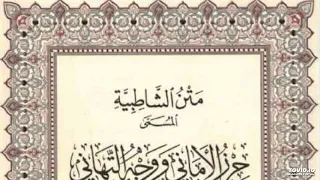 مَتْنُ الشَّاطِبِيَّةِ
المُسَمَّى
حِرْزُ الْأَمَانِي وَوَجْهُ التَّهَانِي